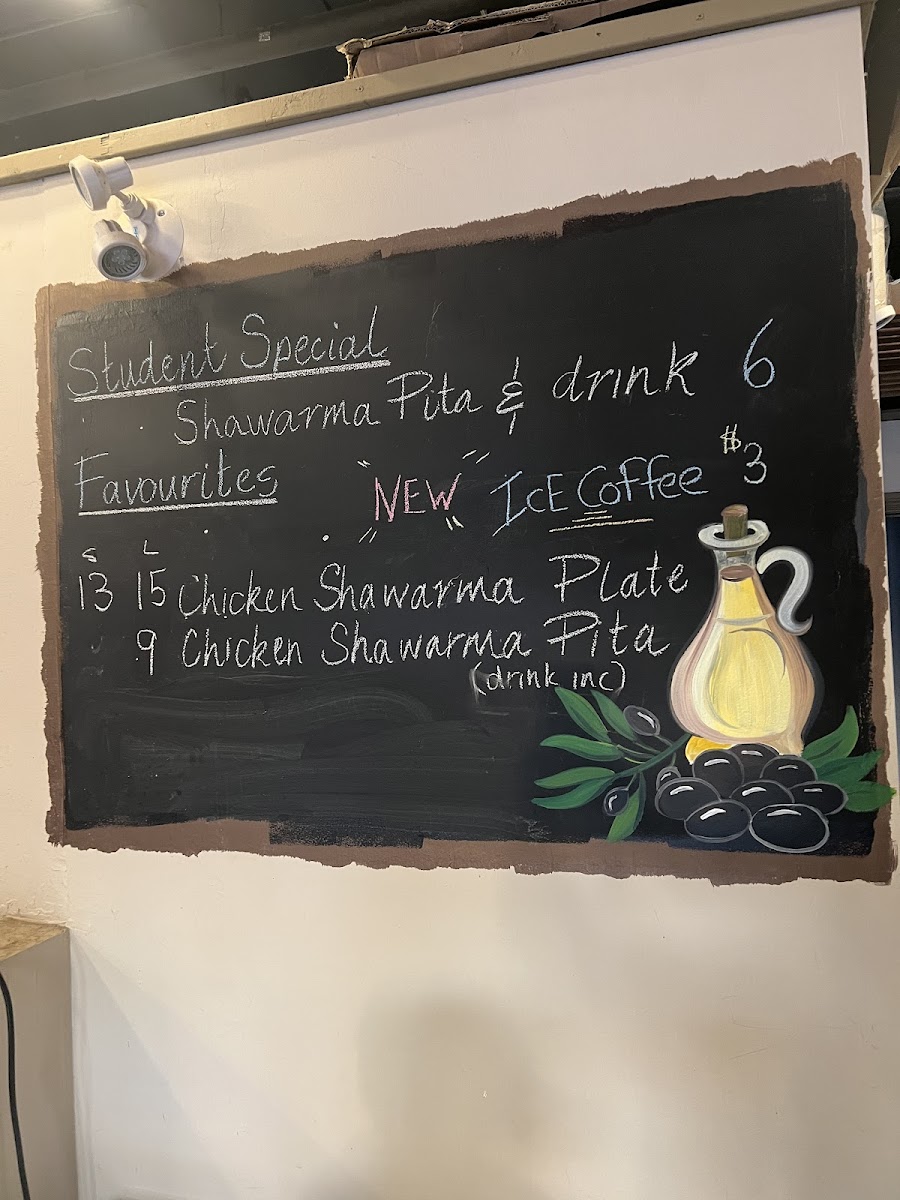 Student Special
Shawarma Pita & drink 6
Favourites
"NEW" ICE Coffee $3
S L
13 15 Chicken Shawarma Plate
9 Chicken Shawarma Pita
(drink inc)